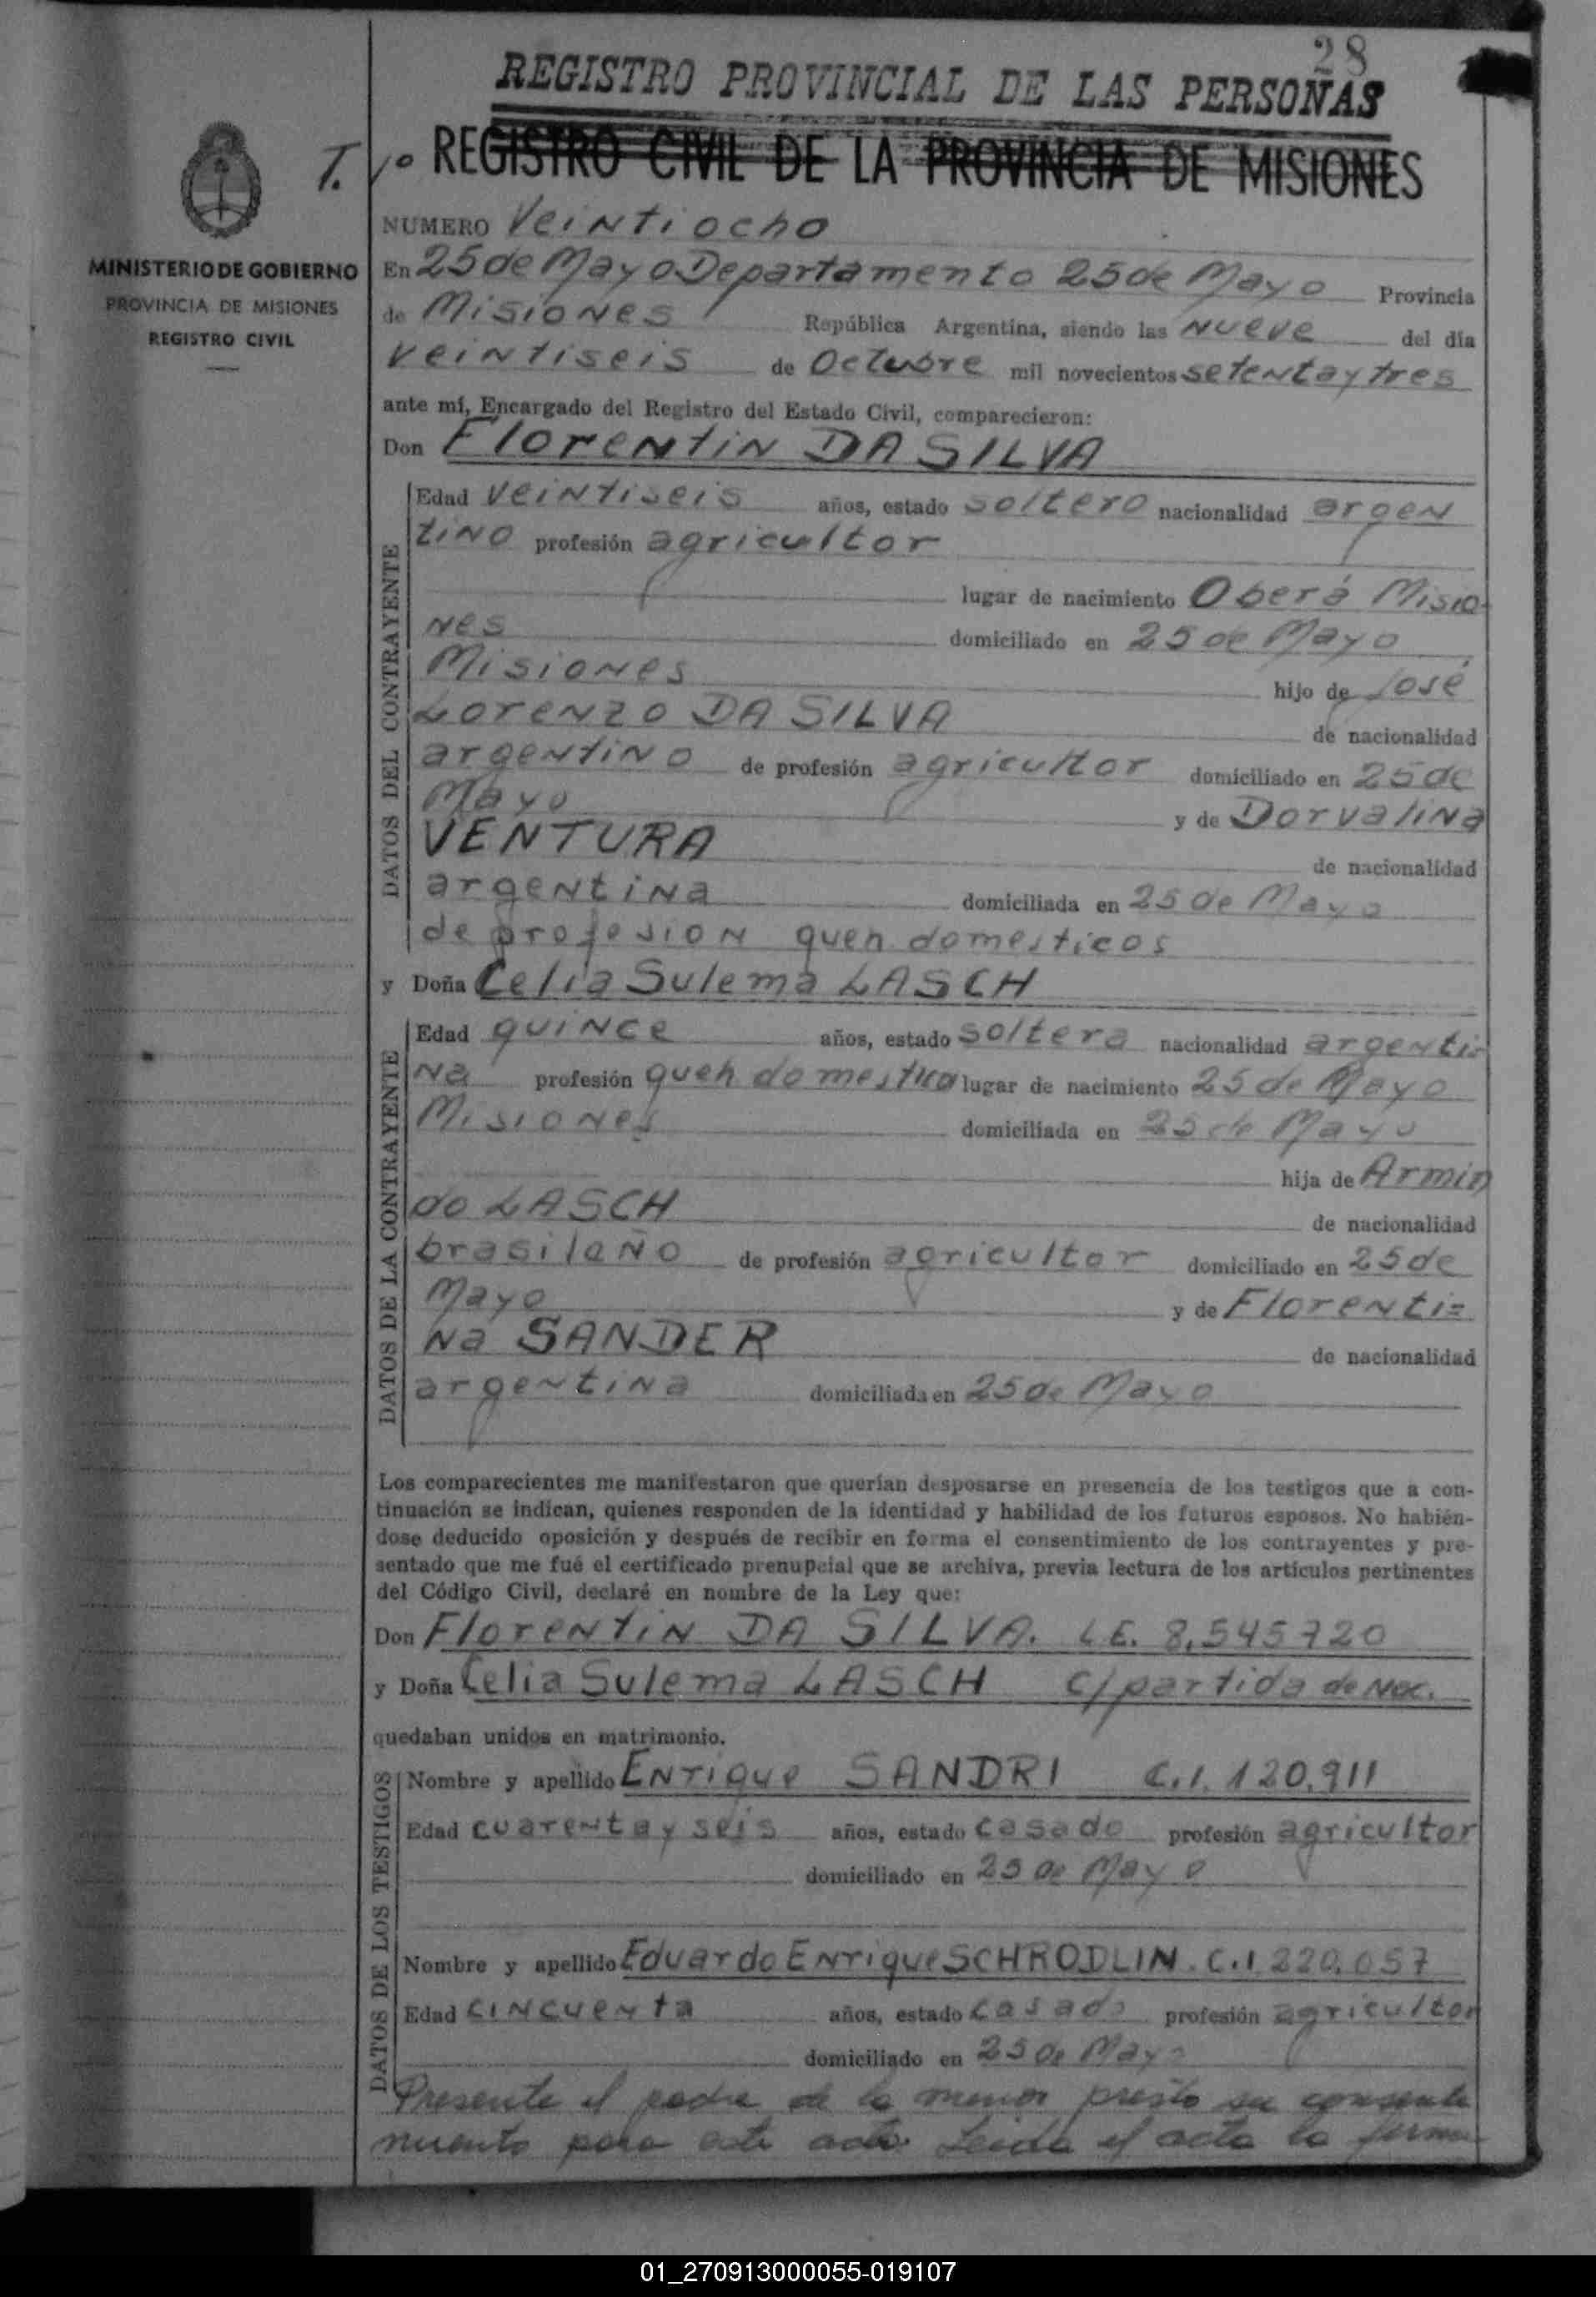 28
REGISTRO PROVINCIAL DE LAS PERSONAS
T. 1º REGISTRO CIVIL DE LA PROVINCIA DE MISIONES
MINISTERIO DE GOBIERNO
PROVINCIA DE MISIONES
REGISTRO CIVIL
NUMERO Veintiocho
En 25 de Mayo Departamento 25 de Mayo Provincia
de Misiones República Argentina, siendo las nueve del día
veintiseis de Octubre mil novecientos setenta y tres
ante mí, Encargado del Registro del Estado Civil, comparecieron:
Don Florentin DA SILVA
DATOS DEL CONTRAYENTE
Edad veintiseis años, estado soltero nacionalidad argen
tino profesión agricultor
lugar de nacimiento Oberá Misio-
nes domiciliado en 25 de Mayo
Misiones hijo de José
Lorenzo DA SILVA de nacionalidad
argentino de profesión agricultor domiciliado en 25 de
Mayo y de Dorvalina
VENTURA de nacionalidad
argentina domiciliada en 25 de Mayo
de profesion queh domesticos
y Doña Celia Sulema LASCH
DATOS DE LA CONTRAYENTE
Edad quince años, estado soltera nacionalidad argenti-
na profesión queh domestico lugar de nacimiento 25 de Mayo
Misiones domiciliada en 25 de Mayo
hija de Armin
do LASCH de nacionalidad
brasileño de profesión agricultor domiciliado en 25 de
Mayo y de Florenti=
na SANDER de nacionalidad
argentina domiciliada en 25 de Mayo
Los comparecientes me manifestaron que querían desposarse en presencia de los testigos que a con-
tinuación se indican, quienes responden de la identidad y habilidad de los futuros esposos. No habién-
dose deducido oposición y después de recibir en forma el consentimiento de los contrayentes y pre-
sentado que me fué el certificado prenupcial que se archiva, previa lectura de los artículos pertinentes
del Código Civil, declaré en nombre de la Ley que:
Don Florentin DA SILVA. L.E. 8,545720
y Doña Celia Sulema LASCH c/partida de Nac.
quedaban unidos en matrimonio.
DATOS DE LOS TESTIGOS
Nombre y apellido Enrique SANDRI C.I. 120.911
Edad cuarenta y seis años, estado casado profesión agricultor
domiciliado en 25 de Mayo
Nombre y apellido Eduardo Enrique SCHRODLIN. C.I 220.057
Edad cincuenta años, estado casado profesión agricultor
domiciliado en 25 de Mayo
Presente el padre de la menor presto su consenti
miento para este acto. Leida el acta la firma-
01_270913000055-019107